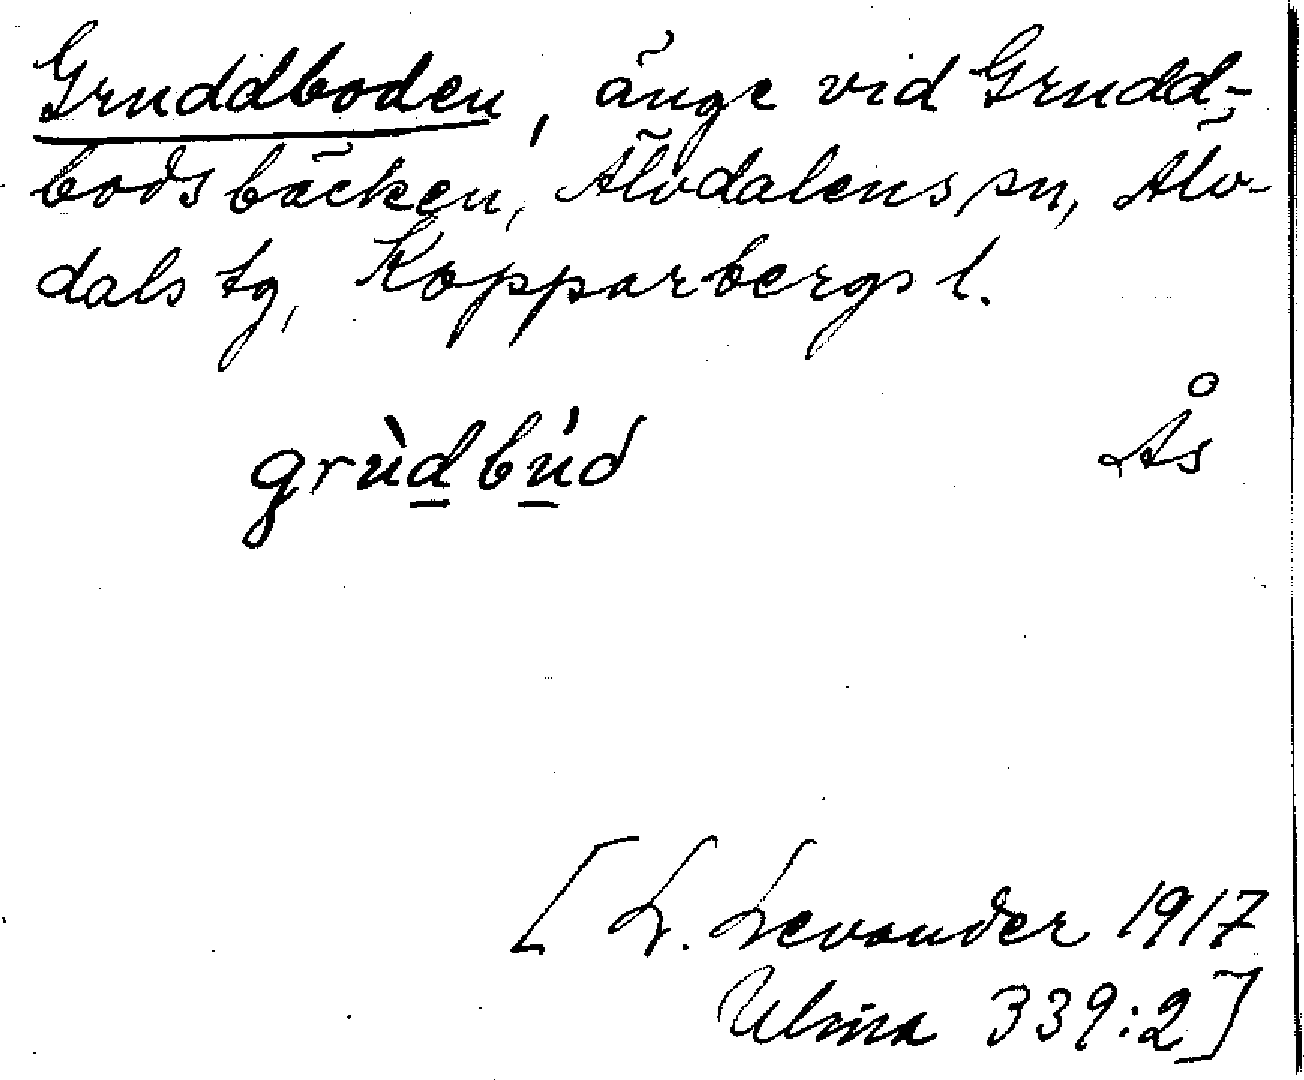 Gruddboden, änge vid Grudd-
bodsbäcken, Älvdalens sn, Älv-
dals tg, Kopparbergs l.
grùd̲bú̲d
Ås
[L. Levander 1917
Ulma 339:2]